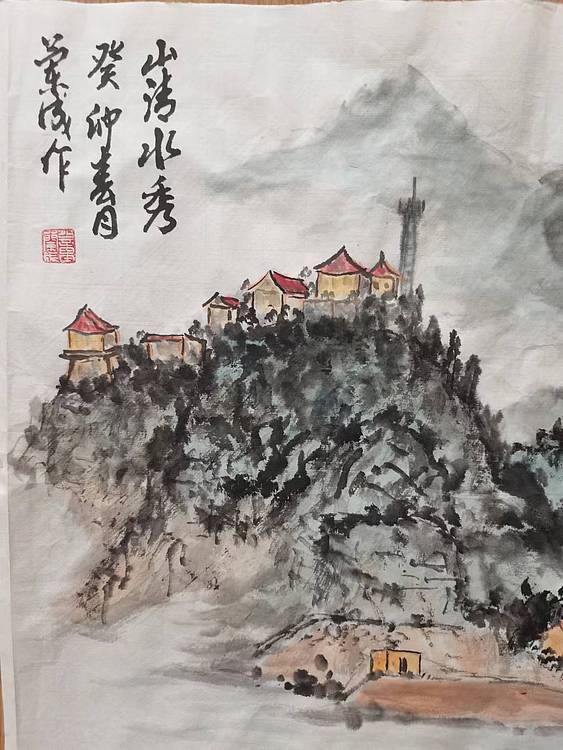 山清水秀
癸卯春月
成作